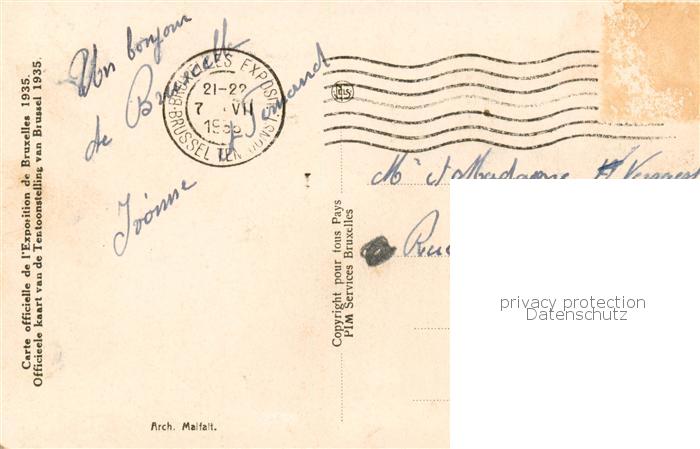 Un bonjour
de Bruxelles
Ivonne Fernand
BRUXELLES EXPOSI
21-22
7 VII
1935
BRUSSEL TEN TOONST.
Carte officielle de l'Exposition de Bruxelles 1935.
Officieele kaart van de Tentoonstelling van Brussel 1935.
Copyright pour tous Pays
PIM Services Bruxelles
Arch. Malfait.
Mr et Madame
Rue
privacy protection
Datenschutz